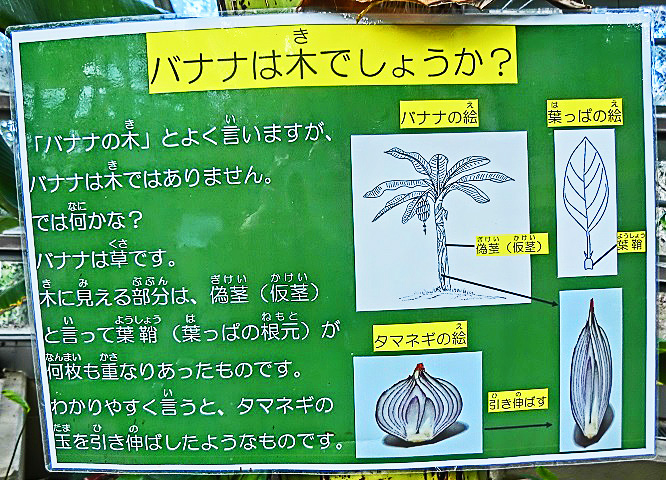 バナナは木でしょうか？
「バナナの木」とよく言いますが、
バナナは木ではありません。
では何かな？
バナナは草です。
木に見える部分は、偽茎（仮茎）
と言って葉鞘（葉っぱの根元）が
何枚も重なりあったものです。
わかりやすく言うと、タマネギの
玉を引き伸ばしたようなものです。
バナナの絵
葉っぱの絵
偽茎（仮茎）
葉鞘
タマネギの絵
引き伸ばす